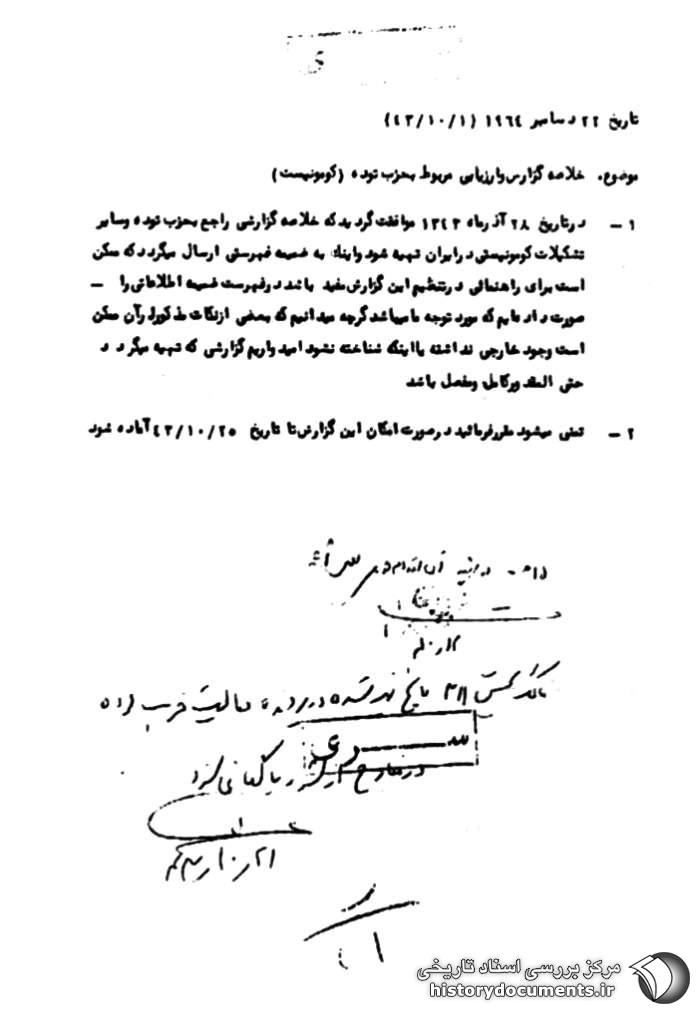 تاریخ ۲۲ دسامبر ۱۹٦٤ (۱/۱۰/٤۳)
موضوع. خلاصه گزارش وارزیابی مربوط بحزب توده (کومونیست)
۱ – درتاریخ ۲۸ آذرماه ۱۳٤۳ موافقت گردید که خلاصه گزارشی راجع بحزب توده وسایر
تشکیلات کومونیستی درایران تهیه شود واینك به ضمیمه فهرستی ارسال میگردد که ممکن
است برای راهنمائی درتنظیم این گزارش مفید باشد درفهرست ضمیمه اطلاعاتی را –
صورت داده ایم که مورد توجه ما میباشد گرچه میدانیم که بعضی ازنکات مذکور درآن ممکن
است وجود خارجی نداشته یا اینکه شناخته نشود امیدواریم گزارشی که تهیه میگردد
حتی المقدور کامل ومفصل باشد
۲ – تمنی میشود مقررفرمائید درصورت امکان این گزارش تا تاریخ ۲۵/۱۰/٤۳ آماده شود
بخش ۳۱۱ پاسخ تهیه شده در فعالیت حزب توده
سری
در خارج بایگانی شود
مرکز بررسی اسناد تاریخی
historydocuments.ir